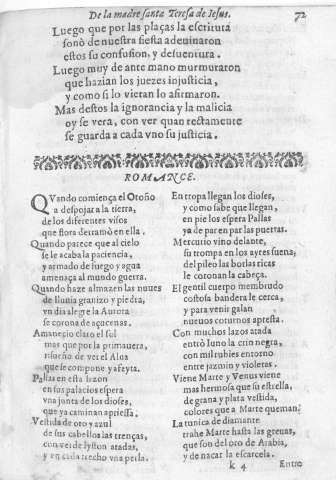 De la madre santa Teresa de Iesus. 72
Luego que por las plaças la escritura
sonò de nuestra fiesta adeuinaron
estos su confusion, y desuentura.
Luego muy de ante mano murmuraron
que hazian los juezes injusticia,
y como si lo vieran lo afirmaron.
Mas destos la ignorancia y la malicia
oy se vera, con ver quan rectamente
se guarda a cada vno su justicia.
ROMANCE.
QVando comiença el Otoño
a despojar la tierra,
de los diferentes visos
que flora derramò en ella.
Quando parece que al cielo
se le acaba la paciencia,
y armado de fuego y agua
amenaça al mundo guerra.
Quando haze almazen las nuues
de lluuia granizo y piedra,
vn dia alegre la Aurora
se corona de açucenas.
Amanecio claro el sol
mas que por la primauera,
risueño de ver el Alua
que se compone y afeyta.
Pallas en esta sazon
en sus palacios espera
vna junta de los dioses,
que ya caminan apriessa.
Vestida de oro y azul
de sus cabellos las trenças,
con verde lyston atadas,
y en cada trecho vna perla.
En tropa llegan los dioses,
y como sabe que llegan,
en pie los espera Pallas
ya de par en par las puertas.
Mercurio vino delante,
su trompa en los ayres suena,
del pileo las borlas ricas
le coronan la cabeça.
El gentil cuerpo membrudo
costosa bandera le cerca,
y para venir galan
nueuos coturnos apresta.
Con muchos lazos atada
entrò Iuno la crin negra,
con mil rubies en torno
entre jazmin y violetas.
Viene Marte y Venus viene
mas hermosa que su estrella,
de grana y plata vestida,
colores que a Marte queman.
La tunica de diamante
trahe Marte hasta las greuas,
que son del oro de Arabia,
y de nacar la escarcela.
k 4 Entro